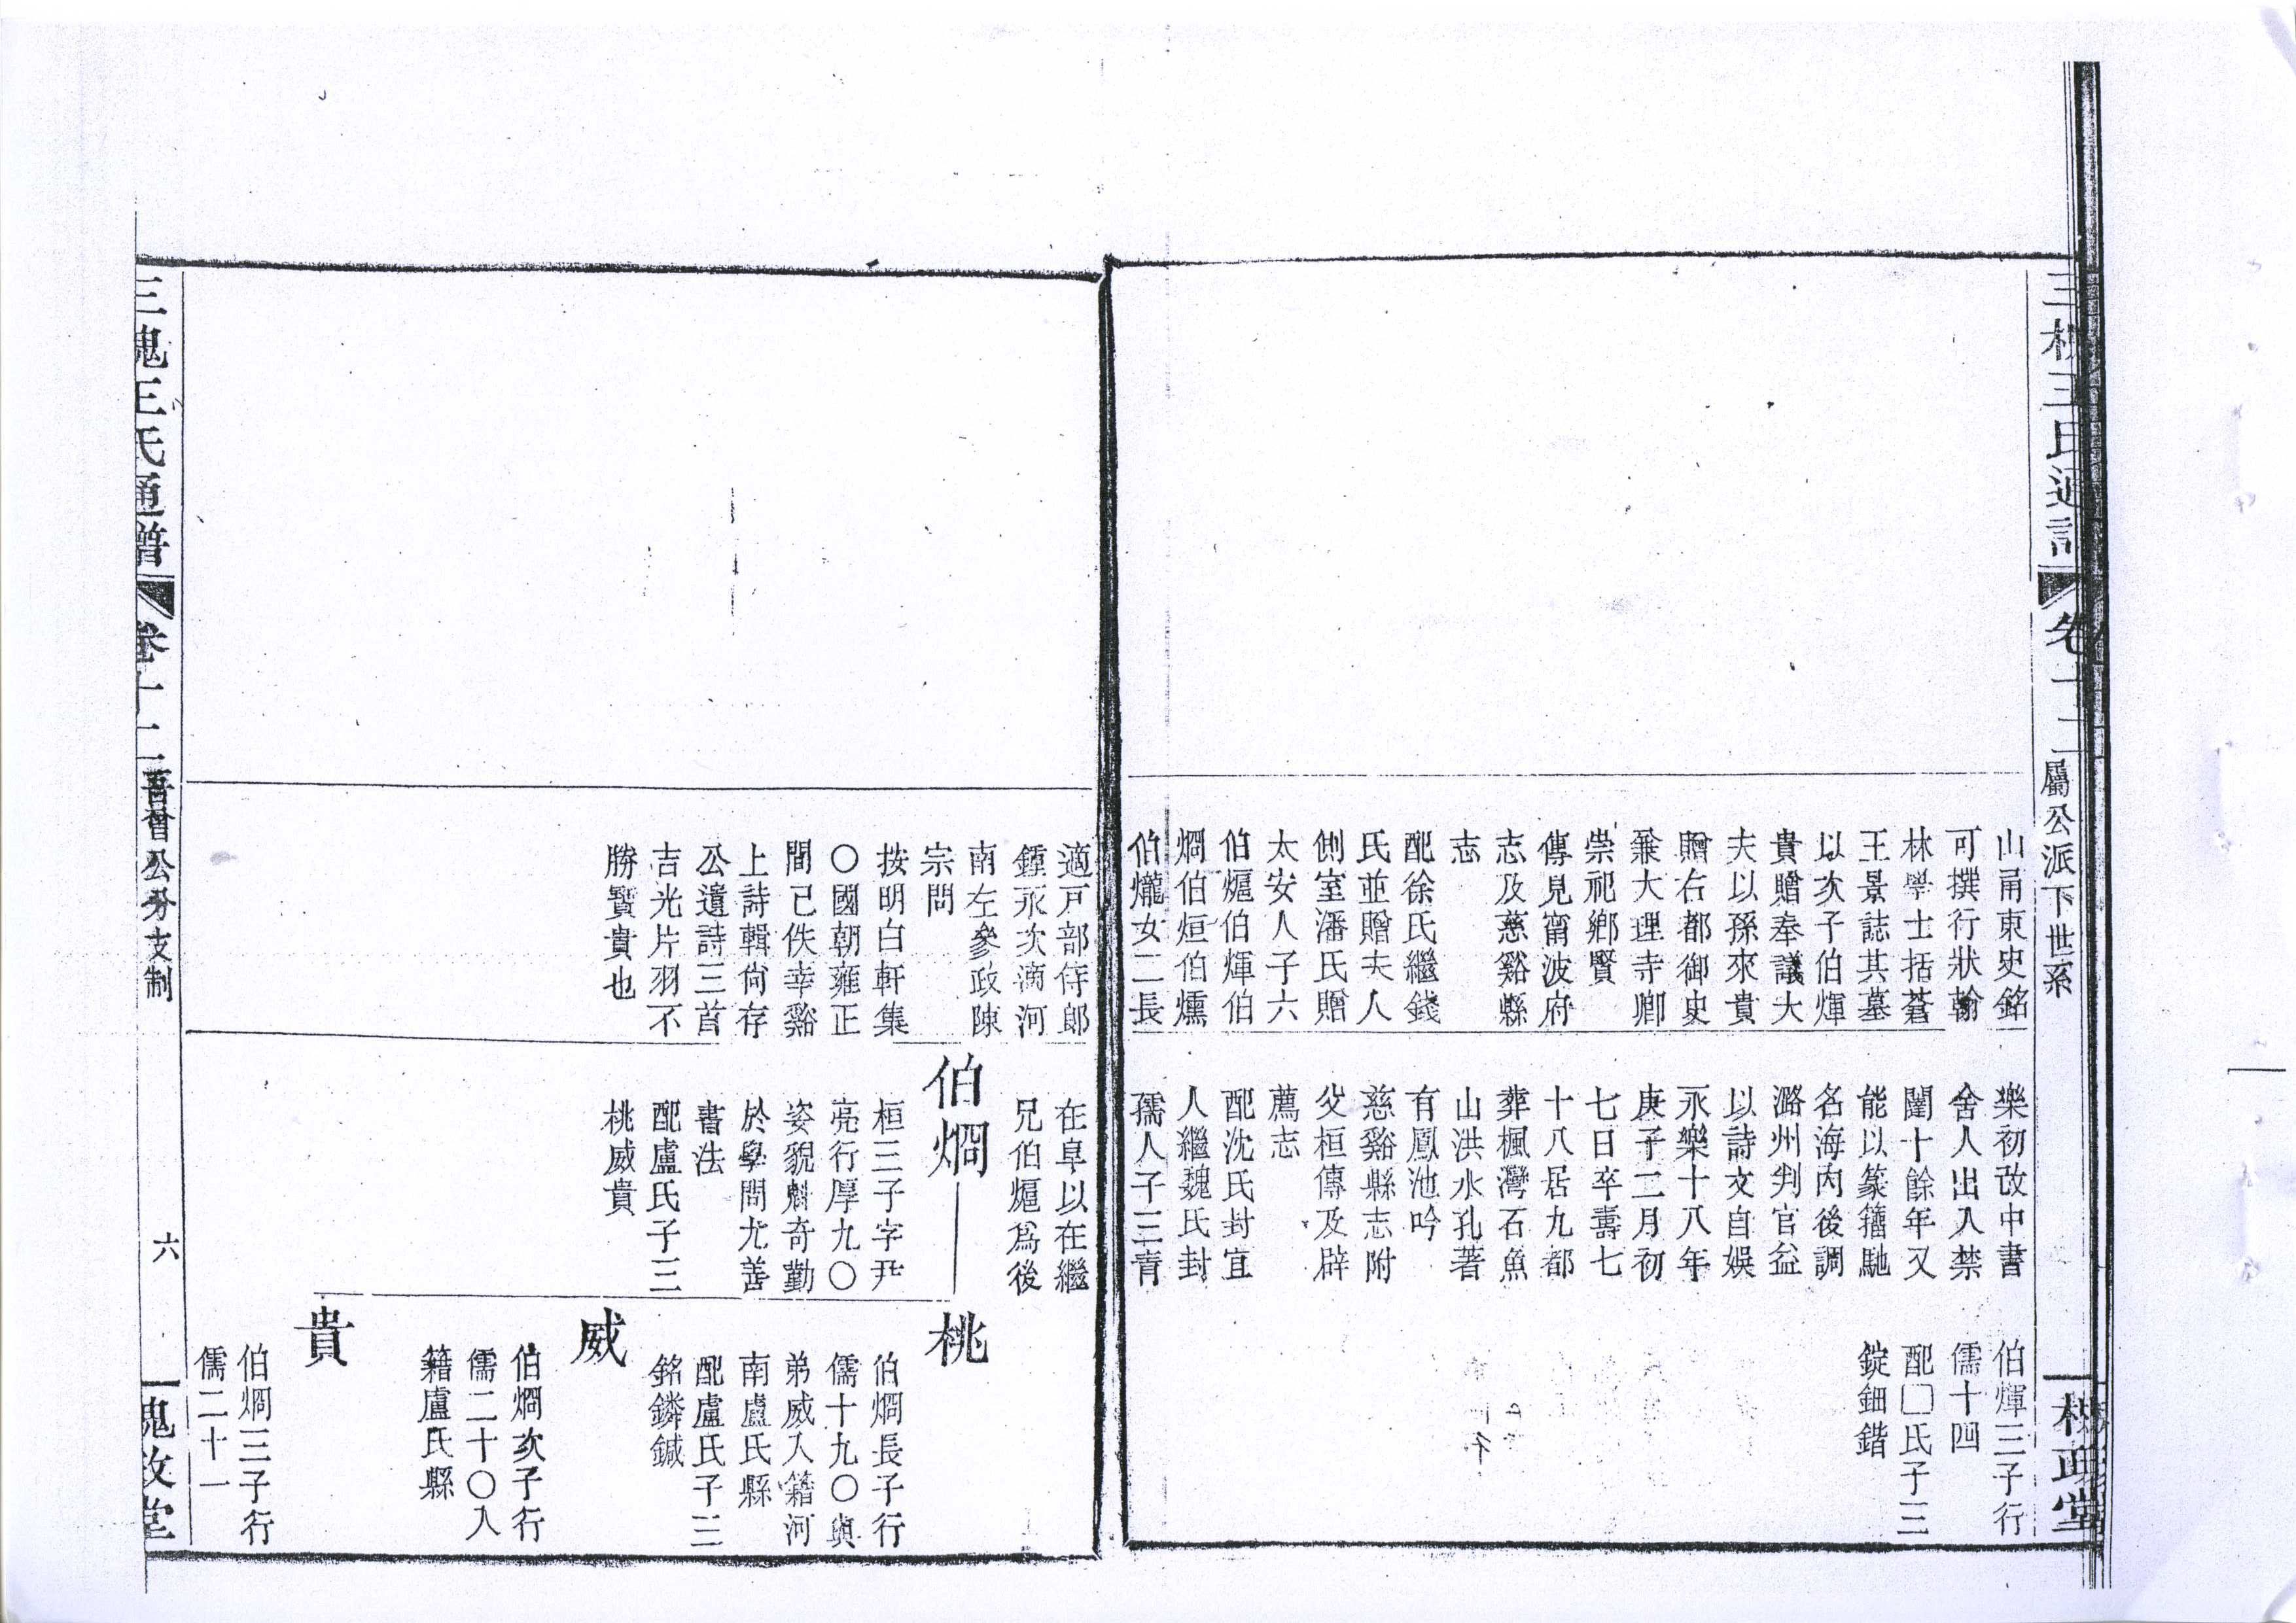 三槐王氏通譜
卷十二
屬公派下世系
槐政堂
山甬東史銘
可撰行狀翰
林學士括蒼
王景誌其墓
以次子伯煇
貴贈奉議大
夫以孫來貴
贈右都御史
兼大理寺卿
崇祀鄉賢
傳見甯波府
志及慈谿縣
志
配徐氏繼錢
氏並贈夫人
側室潘氏贈
太安人子六
伯熰伯煇伯
燗伯烜伯燻
伯爖女二長
樂初改中書
舍人出入禁
闈十餘年又
能以篆籀馳
名海內後調
潞州判官益
以詩文自娛
永樂十八年
庚子二月初
七日卒壽七
十八居九都
葬楓灣石魚
山洪水孔著
有鳳池吟
慈谿縣志附
父桓傳及辟
薦志
配沈氏封宜
人繼魏氏封
孺人子三青
伯煇三子行
儒十四
配□氏子三
錠鈿鍇
適戶部侍郎
鍾永次適河
南左參政陳
宗問
按明白軒集
〇國朝雍正
間已佚幸谿
上詩輯尙存
公遺詩三首
吉光片羽不
勝寶貴也
在阜以在繼
兄伯熰爲後
伯燗
桓三子字尹
亮行厚九〇
姿貌魁奇勤
於學問尤善
書法
配盧氏子三
桃威貴
桃
伯燗長子行
儒十九〇與
弟威入籍河
南盧氏縣
配盧氏子三
銘鏻鍼
威
伯燗次子行
儒二十〇入
籍盧氏縣
貴
伯燗三子行
儒二十一
三槐王氏通譜
卷十二
吾曾公分支制
六
槐政堂